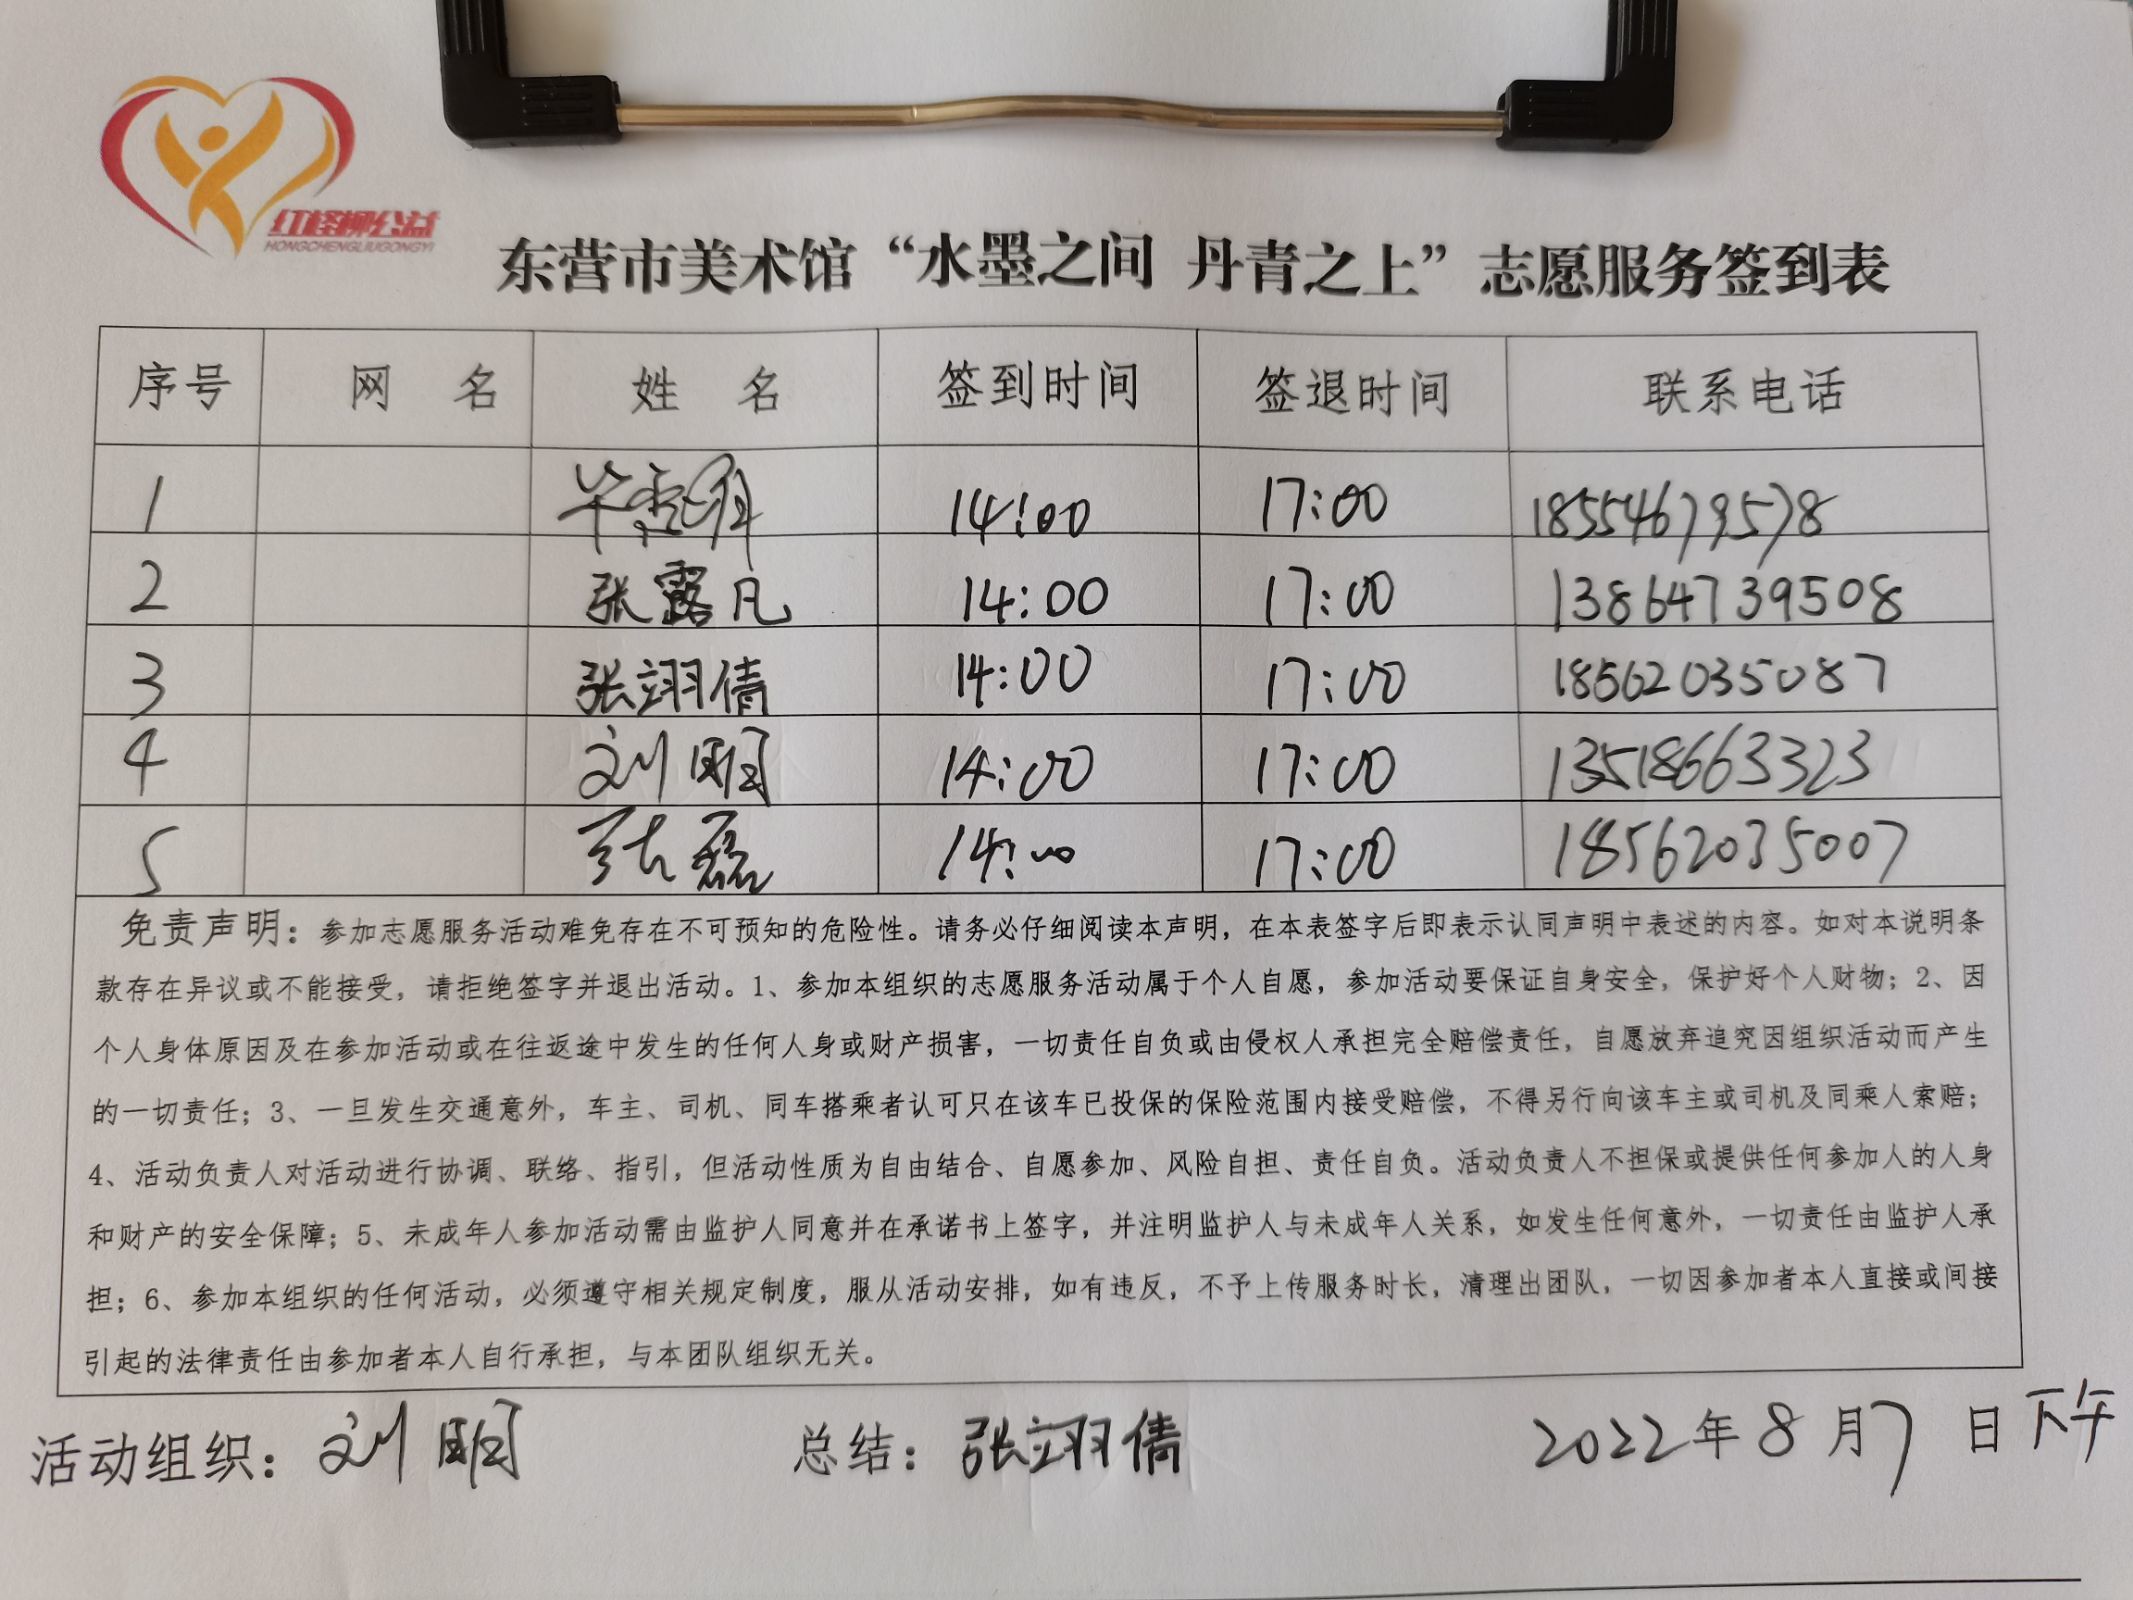 红柽柳公益
HONGCHENGLIUGONGYI
东营市美术馆“水墨之间 丹青之上”志愿服务签到表
序号 网 名 姓 名 签到时间 签退时间 联系电话
1 14:00 17:00 18554679578
2 张露凡 14:00 17:00 13864739508
3 张翊倩 14:00 17:00 18562035087
4 刘明 14:00 17:00 13518663323
5 张磊 14:00 17:00 18562035007
免责声明：参加志愿服务活动难免存在不可预知的危险性。请务必仔细阅读本声明，在本表签字后即表示认同声明中表述的内容。如对本说明条
款存在异议或不能接受，请拒绝签字并退出活动。1、参加本组织的志愿服务活动属于个人自愿，参加活动要保证自身安全，保护好个人财物；2、因
个人身体原因及在参加活动或在往返途中发生的任何人身或财产损害，一切责任自负或由侵权人承担完全赔偿责任，自愿放弃追究因组织活动而产生
的一切责任；3、一旦发生交通意外，车主、司机、同车搭乘者认可只在该车已投保的保险范围内接受赔偿，不得另行向该车主或司机及同乘人索赔；
4、活动负责人对活动进行协调、联络、指引，但活动性质为自由结合、自愿参加、风险自担、责任自负。活动负责人不担保或提供任何参加人的人身
和财产的安全保障；5、未成年人参加活动需由监护人同意并在承诺书上签字，并注明监护人与未成年人关系，如发生任何意外，一切责任由监护人承
担；6、参加本组织的任何活动，必须遵守相关规定制度，服从活动安排，如有违反，不予上传服务时长，清理出团队，一切因参加者本人直接或间接
引起的法律责任由参加者本人自行承担，与本团队组织无关。
活动组织：刘明 总结：张翊倩 2022年8月7日下午